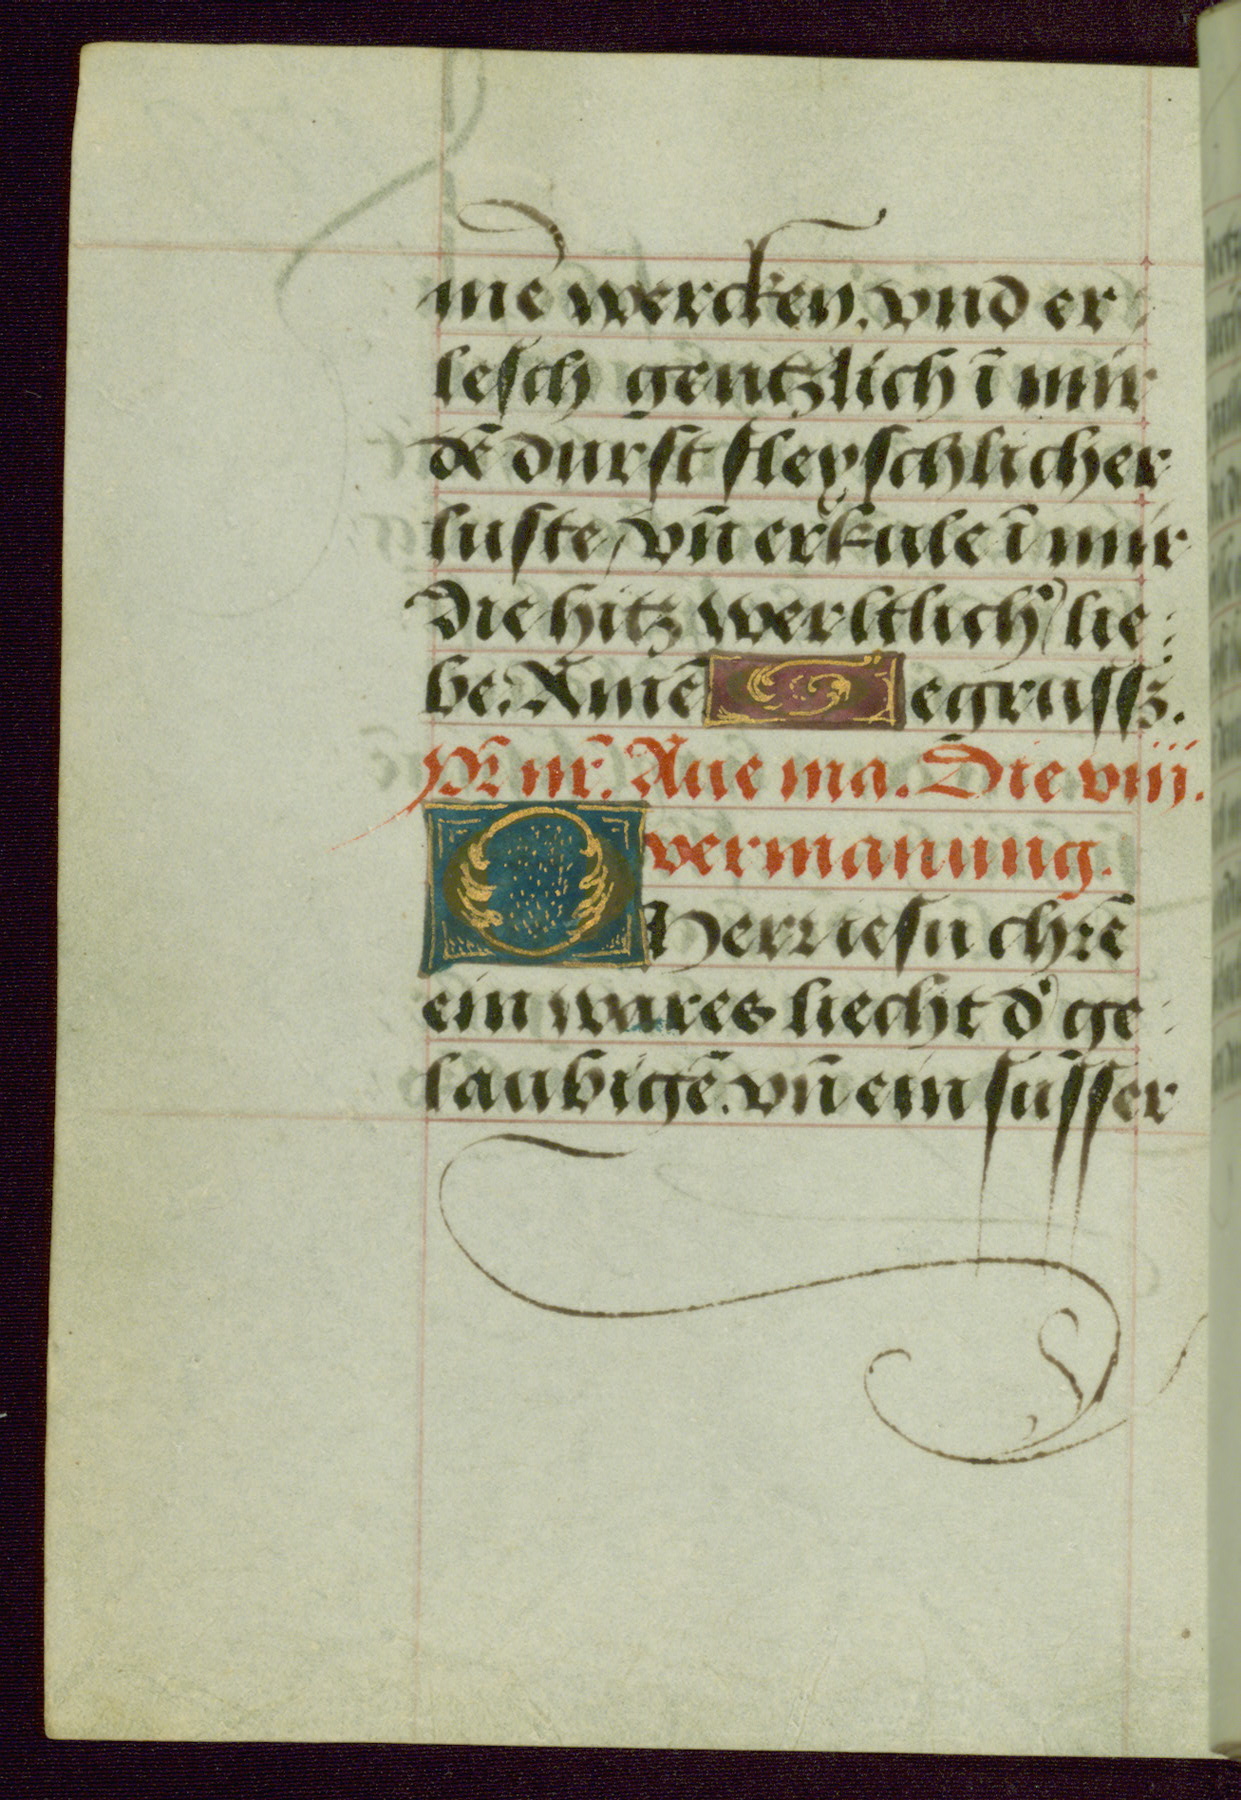 mē wercken. vnd er
lesch gentzlich ī mir
dē durst fleyschlicher
luste, vn̄ erkule ī mir
Die hitz werltlich' lie
be. Amē Gegrussz.
Pr̄ nr̄. Aue ma. Die viii.
vermanung.
O Herr iesu chr̄e
ein wares liecht d' ge
laubigē. vn̄ ein susser